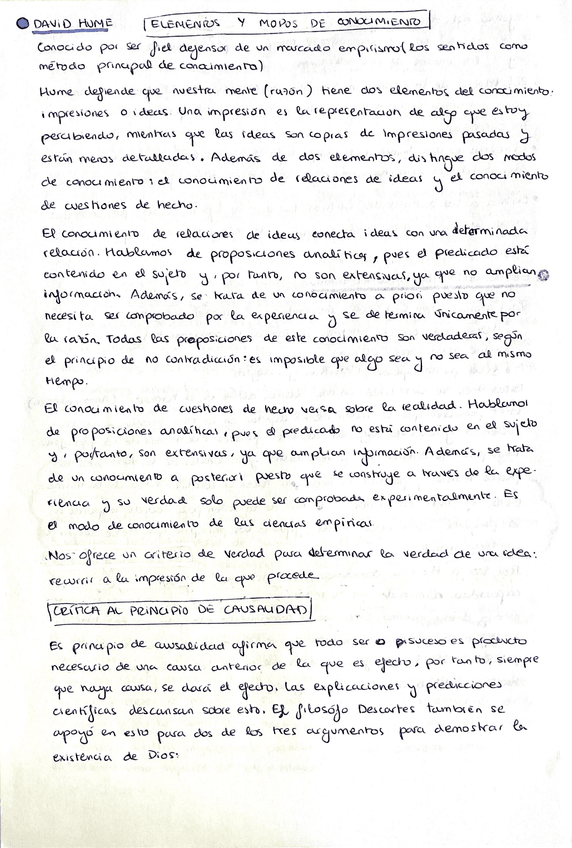 DAVID HUME ELEMENTOS Y MODOS DE CONOCIMIENTO
Conocido por ser fiel defensor de un marcado empirismo (los sentidos como
método principal de conocimiento)
Hume defiende que nuestra mente (razón) tiene dos elementos del conocimiento:
impresiones o ideas. Una impresión es la representación de algo que estoy
percibiendo, mientras que las ideas son copias de impresiones pasadas y
están menos detalladas. Además de dos elementos, distingue dos modos
de conocimiento: el conocimiento de relaciones de ideas y el conocimiento
de cuestiones de hecho.
El conocimiento de relaciones de ideas conecta ideas con una determinada
relación. Hablamos de proposiciones analíticas, pues el predicado está
contenido en el sujeto y, por tanto, no son extensivas, ya que no amplian
información. Además, se trata de un conocimiento a priori puesto que no
necesita ser comprobado por la experiencia y se determina únicamente por
la razón. Todas las proposiciones de este conocimiento son verdaderas, según
el principio de no contradicción: es imposible que algo sea y no sea al mismo
tiempo.
El conocimiento de cuestiones de hecho versa sobre la realidad. Hablamos
de proposiciones analíticas, pues el predicado no está contenido en el sujeto
y, por tanto, son extensivas, ya que amplian información. Además, se trata
de un conocimiento a posteriori puesto que se construye a través de la expe-
riencia y su verdad solo puede ser comprobada experimentalmente. Es
el modo de conocimiento de las ciencias empíricas.
Nos ofrece un criterio de verdad para determinar la verdad de una idea:
recurrir a la impresión de la que procede.
CRÍTICA AL PRINCIPIO DE CAUSALIDAD
Es principio de causalidad afirma que todo ser o suceso es producto
necesario de una causa anterior de la que es efecto, por tanto, siempre
que haya causa, se dará el efecto. Las explicaciones y predicciones
científicas descansan sobre esto. El filosófo Descartes también se
apoyó en esto para dos de los tres argumentos para demostrar la
existencia de Dios: